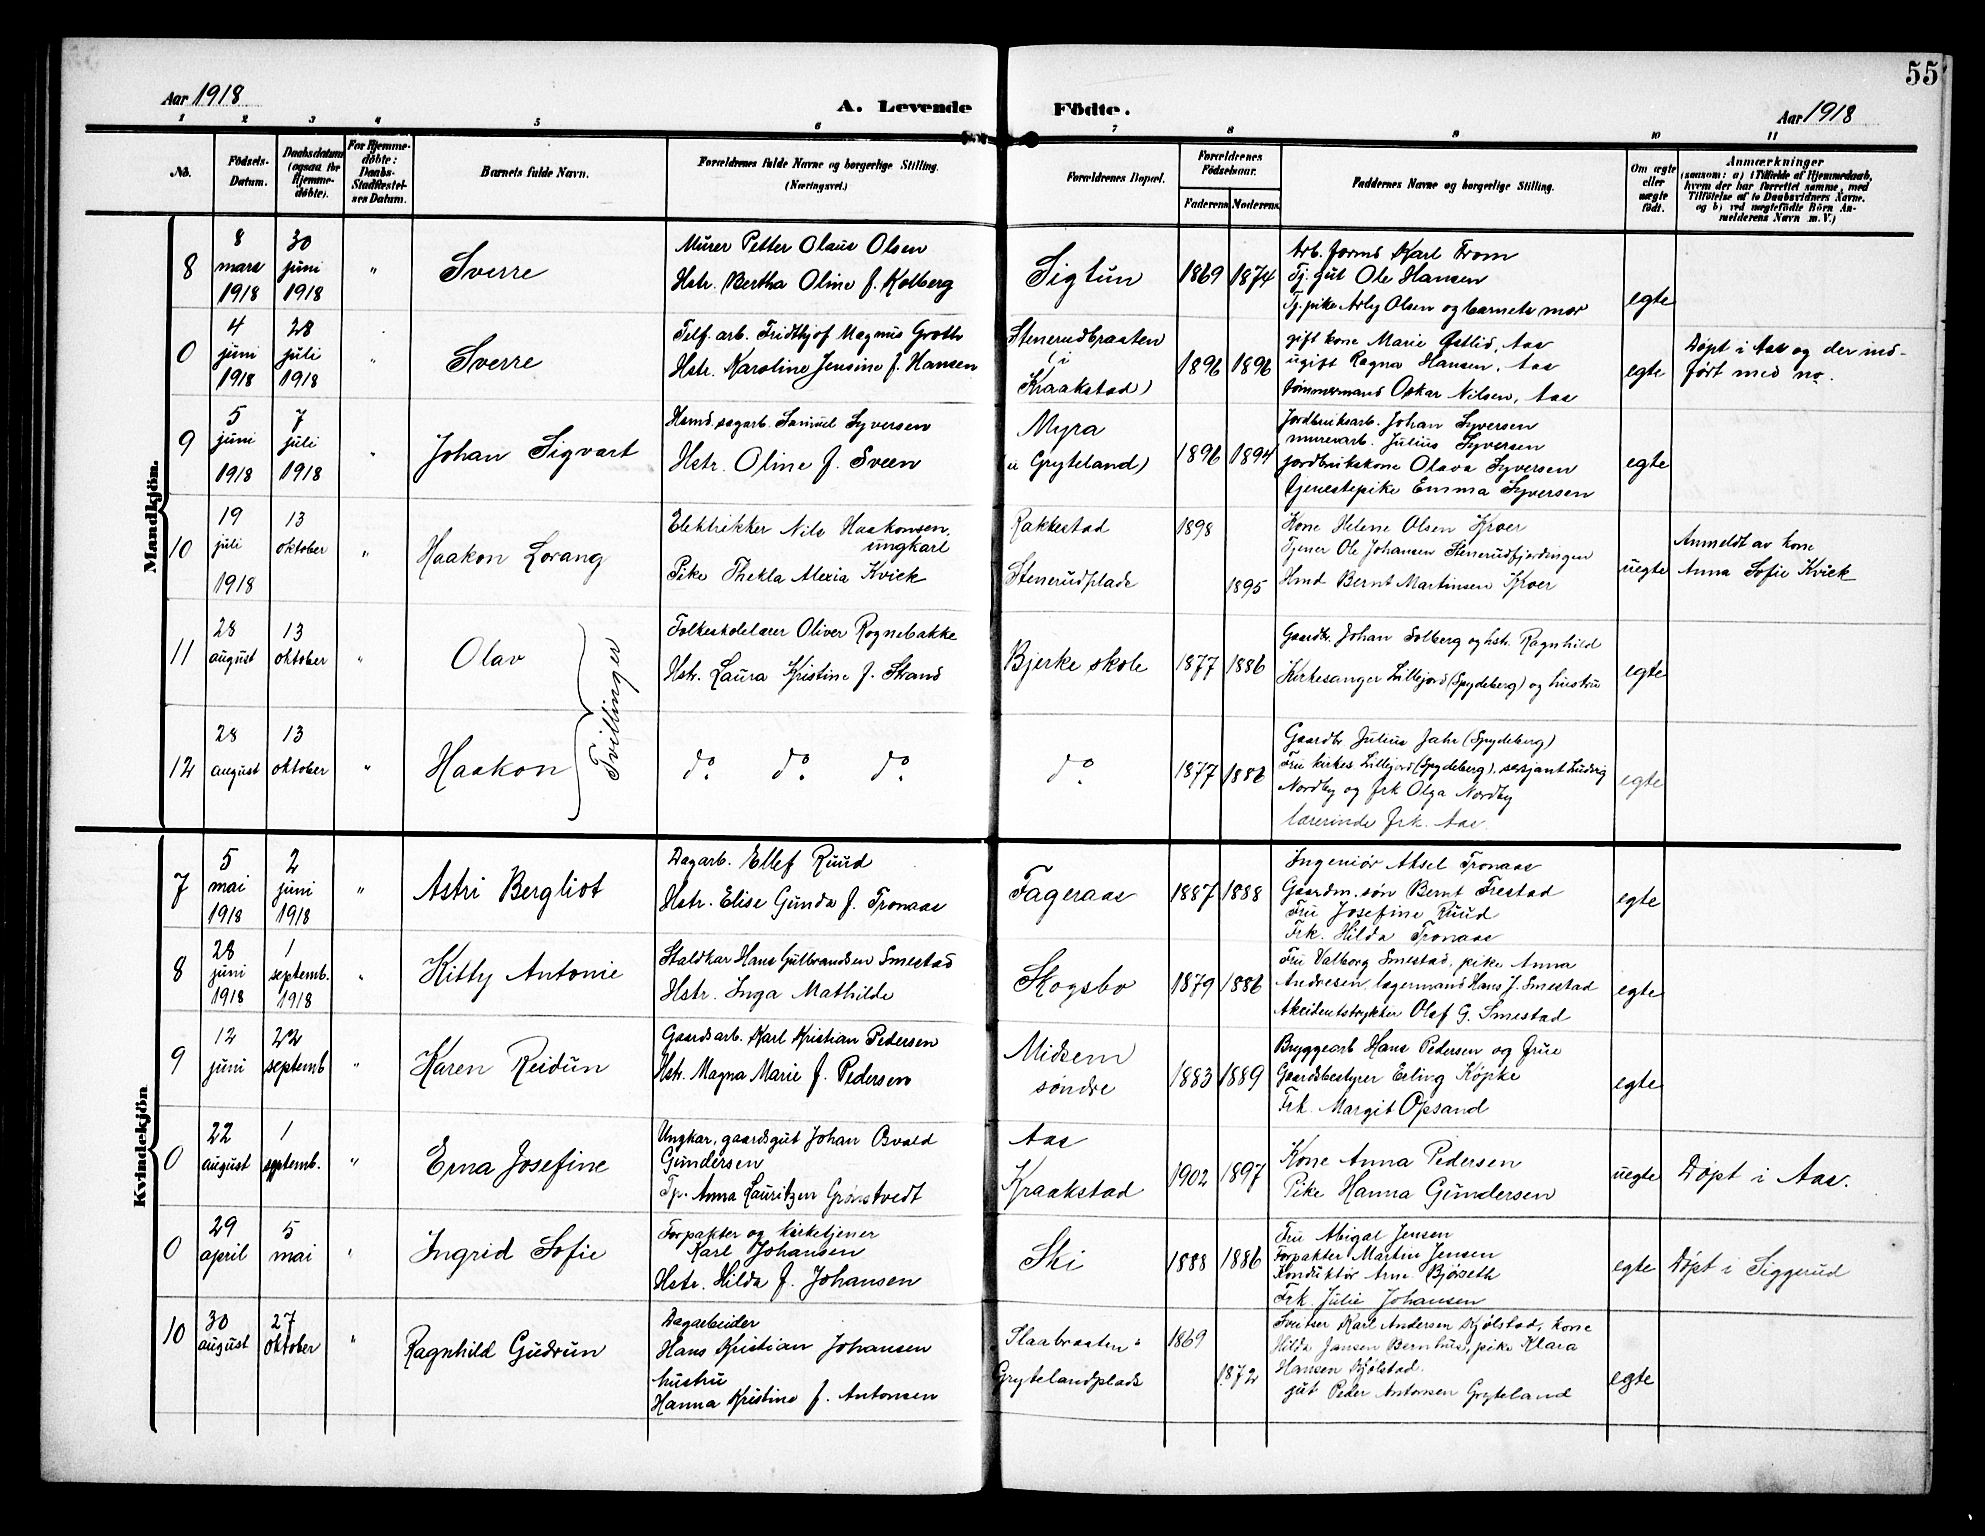 55
Aar 1918
A. Levende Födte.
Aar 1918
1 2 3 4 5 6 7 8 9 10 11
No.
Födsels-Datum.
Daabsdatum (ogsaa for Hjemme-döbte).
For Hjemme-döbte: Daabs-Stadfæstelses Datum.
Barnets fulde Navn.
Forældrenes fulde Navne og borgerlige Stilling. (Næringsvei.)
Forældrenes Bopæl.
Forældrenes Födselsaar.
Faderens
Moderens
Faddernes Navne og borgerlige Stilling.
Om ægte eller uægte födt.
Anmærkninger
(saasom: a) i Tilfælde af Hjemmedaab, hvem der har forrettet samme, med Tilföielse af to Daabsvidners Navne, og b) ved uægtefödte Börn Anmelderens Navn m. V.)
Mandkjön.
8
8 mars 1918
30 juni 1918
"
Sverre
Murer Petter Olaus Olsen
Hstr. Bertha Oline f. Kolberg
Sigtun
1869
1874
Arb. form. Karl From
Tj. gut Ole Hansen
Tj. pike Arly Olsen og barnets mor
egte
0
4 juni 1918
28 juli 1918
"
Sverre
Telf. arb. Fridthjof Magnus Groth
Hstr. Karoline Jensine f. Hansen
Stenerudbraaten
(i
Kraakstad)
1896
1896
gift kone Marie Østlid, Aas
ugift Ragna Hansen, Aas
tømmermand Oskar Nilsen, Aas
egte
Døpt i Aas og der ind-
ført med no.
9
5 juni 1918
7 juli 1918
"
Johan Sigvart
Hsmd. sagarb. Samuel Syversen
Hstr. Oline f. Sveen
Myra
(u Gryteland)
1896
1894
Jordbruksarb. Johan Syversen
murerarb. Julius Syversen
jordbrukskone Olava Syversen
tjenestepike Emma Syversen
egte
10
19 juli 1918
13 oktober
"
Haakon Lorang
Elektriker Nils Haakonsen,
ungkarl
Pike Thekla Alexia Kvick
Rakkestad
Stenerudplads
1898
1895
Kone Helene Olsen Kroer
Tjener Ole Johansen Stenerudfjordingen
Hmd Bernt Martinsen Kroer
uegte
Anmeldt av kone
Anna Sofie Kvick
11
28 august
13 oktober
"
Olav
Tvillinger
Folkeskolelærer Oliver Rognebakke
Hstr. Laura Kristine f. Strand
Bjerke skole
1877
1886
Gaardbr. Johan Solberg og hstr. Ragnhild
Kirkesanger Lillejord (Spydeberg) og hustru
egte
12
28 august
13 oktober
"
Haakon
do do do
do
1877
1886
Gaardbr Julius Jahr (Spydeberg)
Fru kirkes. Lillejord (Spydeberg), sersjant Ludvig
Nordby og frk Olga Nordby
lærerinde frk. Aas.
egte
Kvindekjön
7
5 mai 1918
2 juni 1918
"
Astri Bergliot
Dagarb. Ellef Ruud
Hstr. Elise Gunda f. Tronaas
Fageraas
1887
1888
Ingeniør Aksel Tronaas
Gaardm. søn Bernt Frestad
Fru Josefine Ruud
Frk. Hilda Tronaas
egte
8
28 juni 1918
1 septemb. 1918
"
Kitty Antonie
Staldkar Hans Gulbrandsen Smestad
Hstr. Inga Mathilde
Skogsbo
1879
1886
Fru Valborg Smestad, pike Anna
Andresen, lagermand Hans J. Smestad
Akcidentstrykker Olaf G. Smestad
egte
9
12 juni
22 septemb
"
Karen Reidun
Gaardsarb. Karl Kristian Pedersen
Hstr. Magna Marie f. Pedersen
Midsem
søndre
1883
1889
Bryggearb Hans Pedersen og frue
Gaardsbestyrer Erling Køpke
Frk. Margit Opsand
egte
0
22 august
1 septemb.
"
Erna Josefine
Ungkar, gaardsgut Johan Osvald
Gundersen
Tp. Anna Lauritzen Grønstvedt
Aas
Kraakstad
1902
1897
Kone Anna Pedersen
Pike Hanna Gundersen
uegte
Døpt i Aas.
0
29 april
5 mai
"
Ingrid Sofie
Forpakter og kirketjener
Karl Johansen
Hstr. Hilda f. Johansen
Ski
1888
1886
Fru Abigal Jensen
Forpakter Martin Jensen
Konduktør Arne Bjørseth
Frk. Julie Johansen
egte
Døpt i Siggerud
10
30 august
27 oktober
"
Ragnhild Gudrun
Dagarbeider
Hans Kristian Johansen
hustru
Hanna Kristine f. Antonsen
Slaabraaten
Grytelandplads
1869
1872
Sveitser Karl Andersen Kjølstad, kone
Hilda Jansen Bernhus, pike Klara
Hansen Kjølstad.
gut Peder Antonsen Gryteland
egte